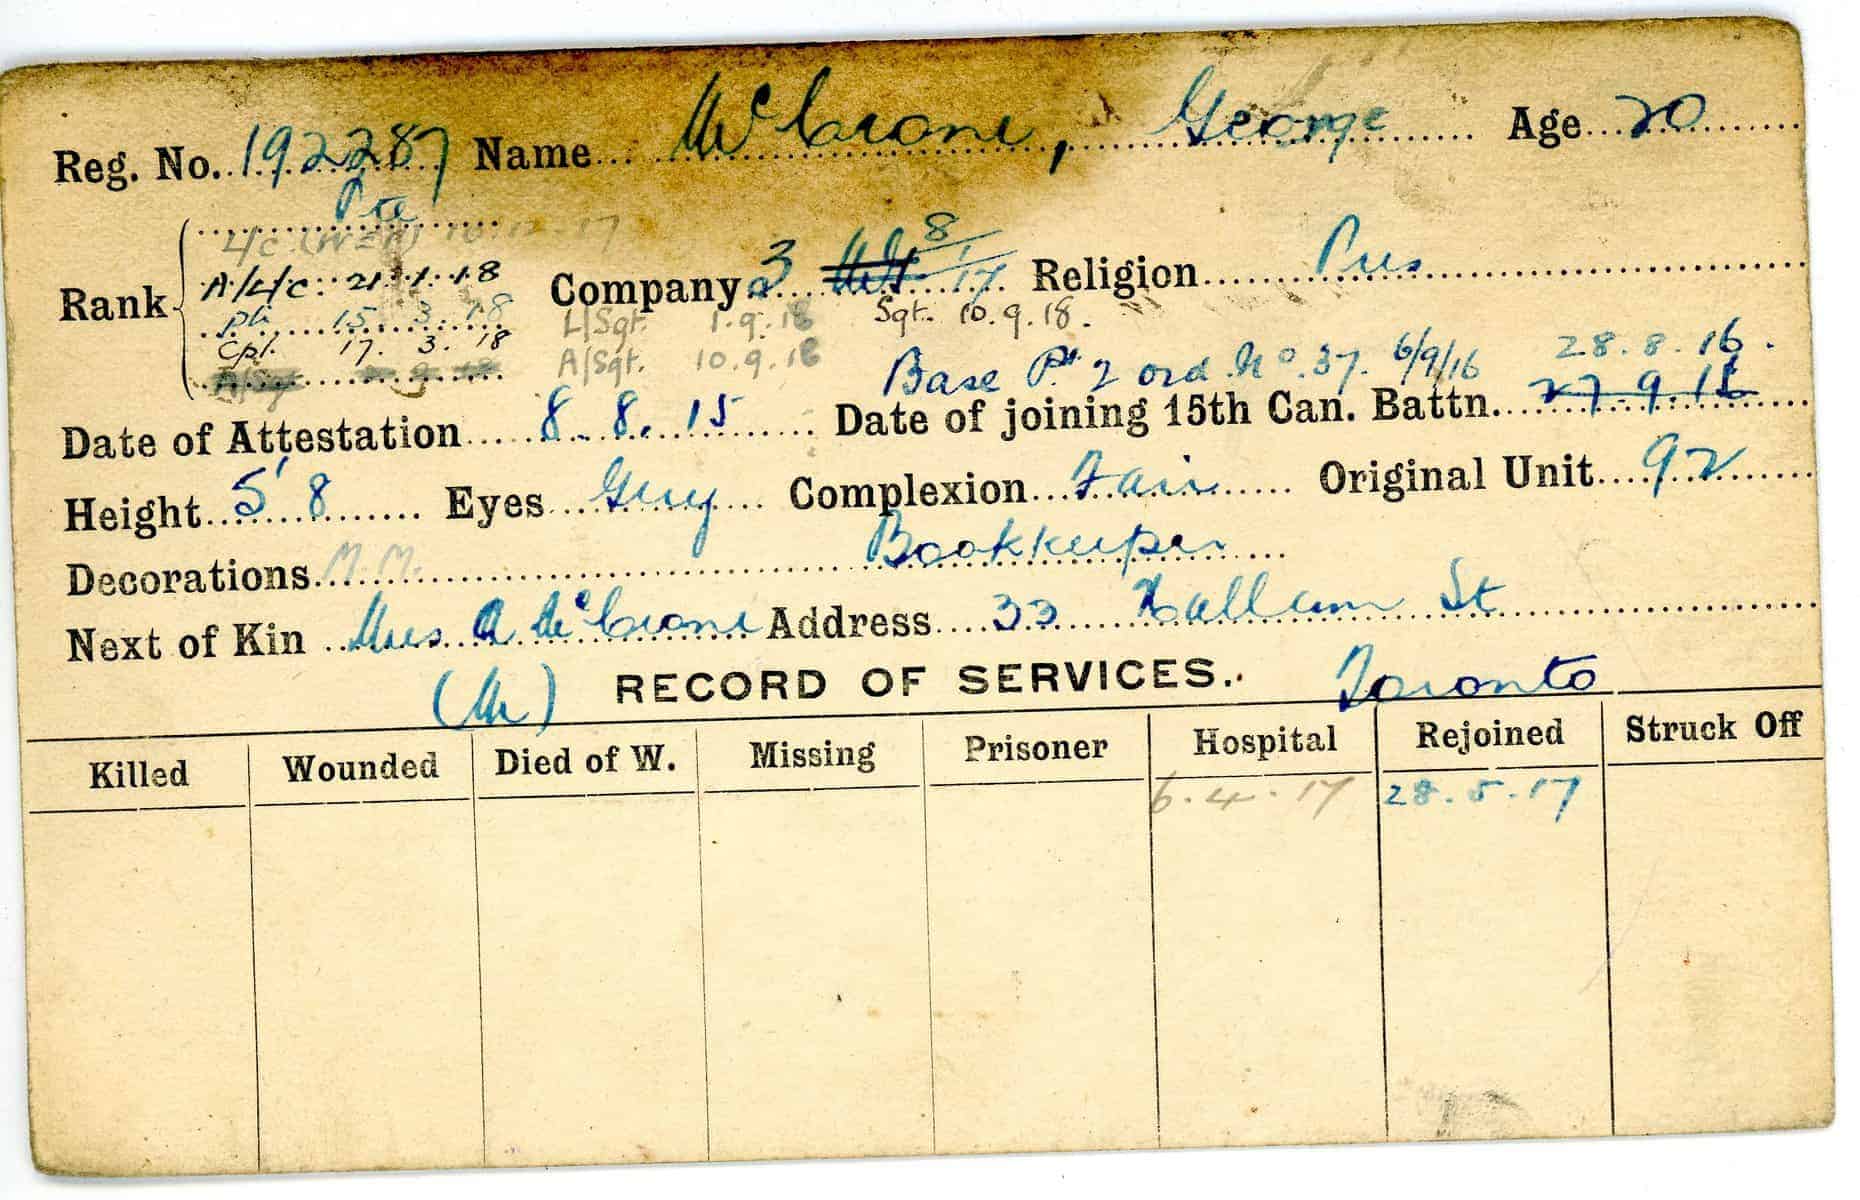 Reg. No. 192287 Name McCrone, George Age 20
Pte
L/C 10.12.17
Rank A/L/C. 21.1.18 Company 3 8/1/17 Religion Pres
15.3.18 L/Sgt. 1.9.18 Sgt. 10.9.18.
Cpl. 17.3.18 A/Sgt. 10.9.18
A/Sgt Base Pt 2 ord No. 37. 6/9/16 28.8.16.
Date of Attestation 8.8.15 Date of joining 15th Can. Battn. 27.9.16
Height 5'8 Eyes Grey Complexion Fair Original Unit 92
Decorations M.M. Bookkeeper
Next of Kin Mrs A McCrone Address 33 Hallam St
(M) RECORD OF SERVICES. Toronto
Killed Wounded Died of W. Missing Prisoner Hospital Rejoined Struck Off
6.4.17 28.5.17